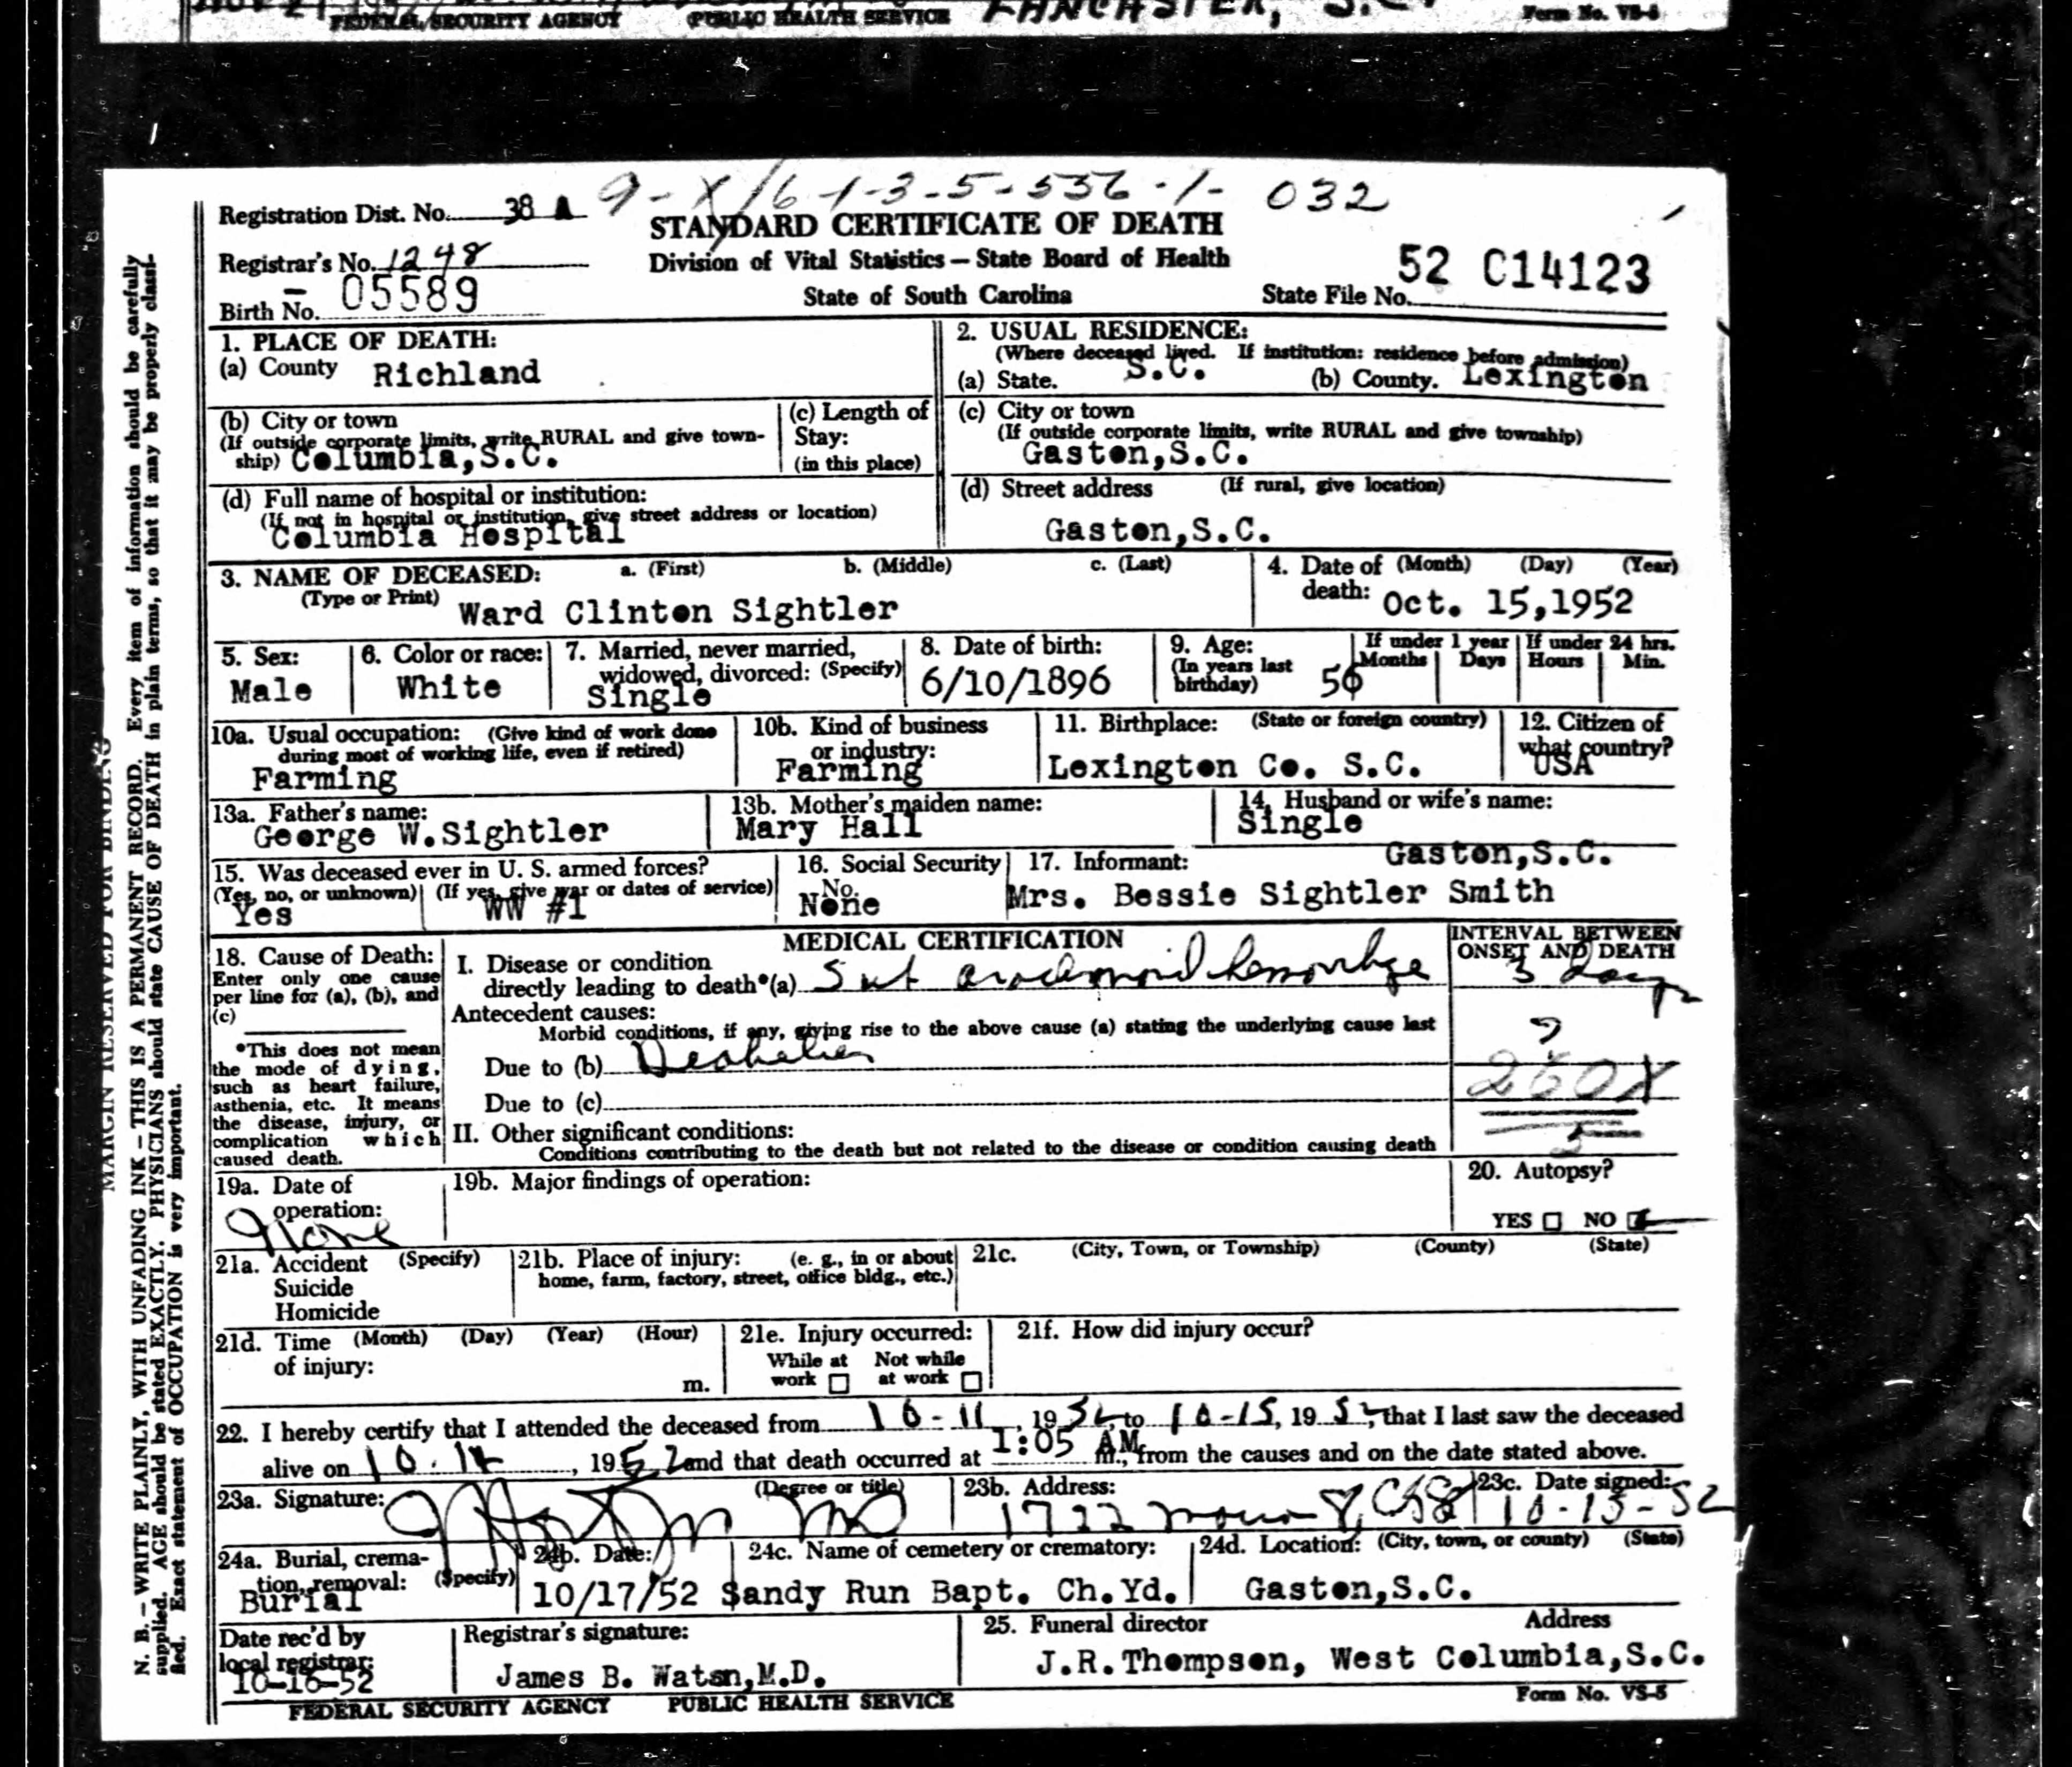 FEDERAL SECURITY AGENCY PUBLIC HEALTH SERVICE LANCASTER, S.C. Form No. VS-5
9-X/6-1-3-5-536-1- 032
Registration Dist. No. 38 A
STANDARD CERTIFICATE OF DEATH
Registrar's No. 1248
Division of Vital Statistics — State Board of Health
52 C14123
Birth No. 05589
State of South Carolina
State File No.
1. PLACE OF DEATH:
(a) County Richland
2. USUAL RESIDENCE:
(Where deceased lived. If institution: residence before admission)
(a) State. S.C. (b) County. Lexington
(b) City or town
(If outside corporate limits, write RURAL and give town-
ship) Columbia,S.C.
(c) Length of
Stay:
(in this place)
(c) City or town
(If outside corporate limits, write RURAL and give township)
Gaston,S.C.
(d) Full name of hospital or institution:
(If not in hospital or institution, give street address or location)
Columbia Hospital
(d) Street address (If rural, give location)
Gaston,S.C.
3. NAME OF DECEASED: a. (First) b. (Middle) c. (Last)
(Type or Print) Ward Clinton Sightler
4. Date of (Month) (Day) (Year)
death: Oct. 15,1952
5. Sex:
Male
6. Color or race:
White
7. Married, never married,
widowed, divorced: (Specify)
Single
8. Date of birth:
6/10/1896
9. Age:
(In years last
birthday) 56
If under 1 year
Months Days
If under 24 hrs.
Hours Min.
10a. Usual occupation: (Give kind of work done
during most of working life, even if retired)
Farming
10b. Kind of business
or industry:
Farming
11. Birthplace: (State or foreign country)
Lexington Co. S.C.
12. Citizen of
what country?
USA
13a. Father's name:
George W.Sightler
13b. Mother's maiden name:
Mary Hall
14. Husband or wife's name:
Single
15. Was deceased ever in U. S. armed forces?
(Yes, no, or unknown) (If yes, give war or dates of service)
Yes WW #1
16. Social Security
No.
None
17. Informant: Gaston,S.C.
Mrs. Bessie Sightler Smith
18. Cause of Death:
Enter only one cause
per line for (a), (b), and
(c)
*This does not mean
the mode of dying,
such as heart failure,
asthenia, etc. It means
the disease, injury, or
complication which
caused death.
MEDICAL CERTIFICATION
I. Disease or condition
directly leading to death*(a) Sub arachnoid hemorrhage
Antecedent causes:
Morbid conditions, if any, giving rise to the above cause (a) stating the underlying cause last
Due to (b) Diabetes
Due to (c)
II. Other significant conditions:
Conditions contributing to the death but not related to the disease or condition causing death
INTERVAL BETWEEN
ONSET AND DEATH
3 days
?
260X
5
19a. Date of
operation:
None
19b. Major findings of operation:
20. Autopsy?
YES NO
21a. Accident (Specify)
Suicide
Homicide
21b. Place of injury: (e. g., in or about
home, farm, factory, street, office bldg., etc.)
21c. (City, Town, or Township) (County) (State)
21d. Time (Month) (Day) (Year) (Hour)
of injury: m.
21e. Injury occurred:
While at Not while
work at work
21f. How did injury occur?
22. I hereby certify that I attended the deceased from 10-11, 1952, to 10-15, 1952, that I last saw the deceased
alive on 10.14, 1952 and that death occurred at 1:05 AM m., from the causes and on the date stated above.
23a. Signature: (Degree or title)
MD
23b. Address:
1722
23c. Date signed:
10-15-52
24a. Burial, crema-
tion, removal: (Specify)
Burial
24b. Date:
10/17/52
24c. Name of cemetery or crematory:
Sandy Run Bapt. Ch.Yd.
24d. Location: (City, town, or county) (State)
Gaston,S.C.
Date rec'd by
local registrar:
10-16-52
Registrar's signature:
James B. Watsn,M.D.
25. Funeral director Address
J.R.Thompson, West Columbia,S.C.
FEDERAL SECURITY AGENCY PUBLIC HEALTH SERVICE
Form No. VS-5
MARGIN RESERVED FOR BINDING
N. B. — WRITE PLAINLY, WITH UNFADING INK — THIS IS A PERMANENT RECORD. Every item of information should be carefully
supplied. AGE should be stated EXACTLY. PHYSICIANS should state CAUSE OF DEATH in plain terms, so that it may be properly classi-
fied. Exact statement of OCCUPATION is very important.